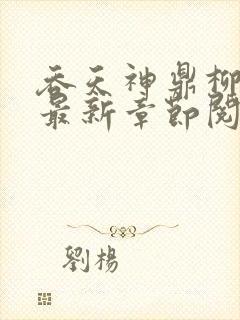 吞天神鼎柳
最新章節閱
劉楊